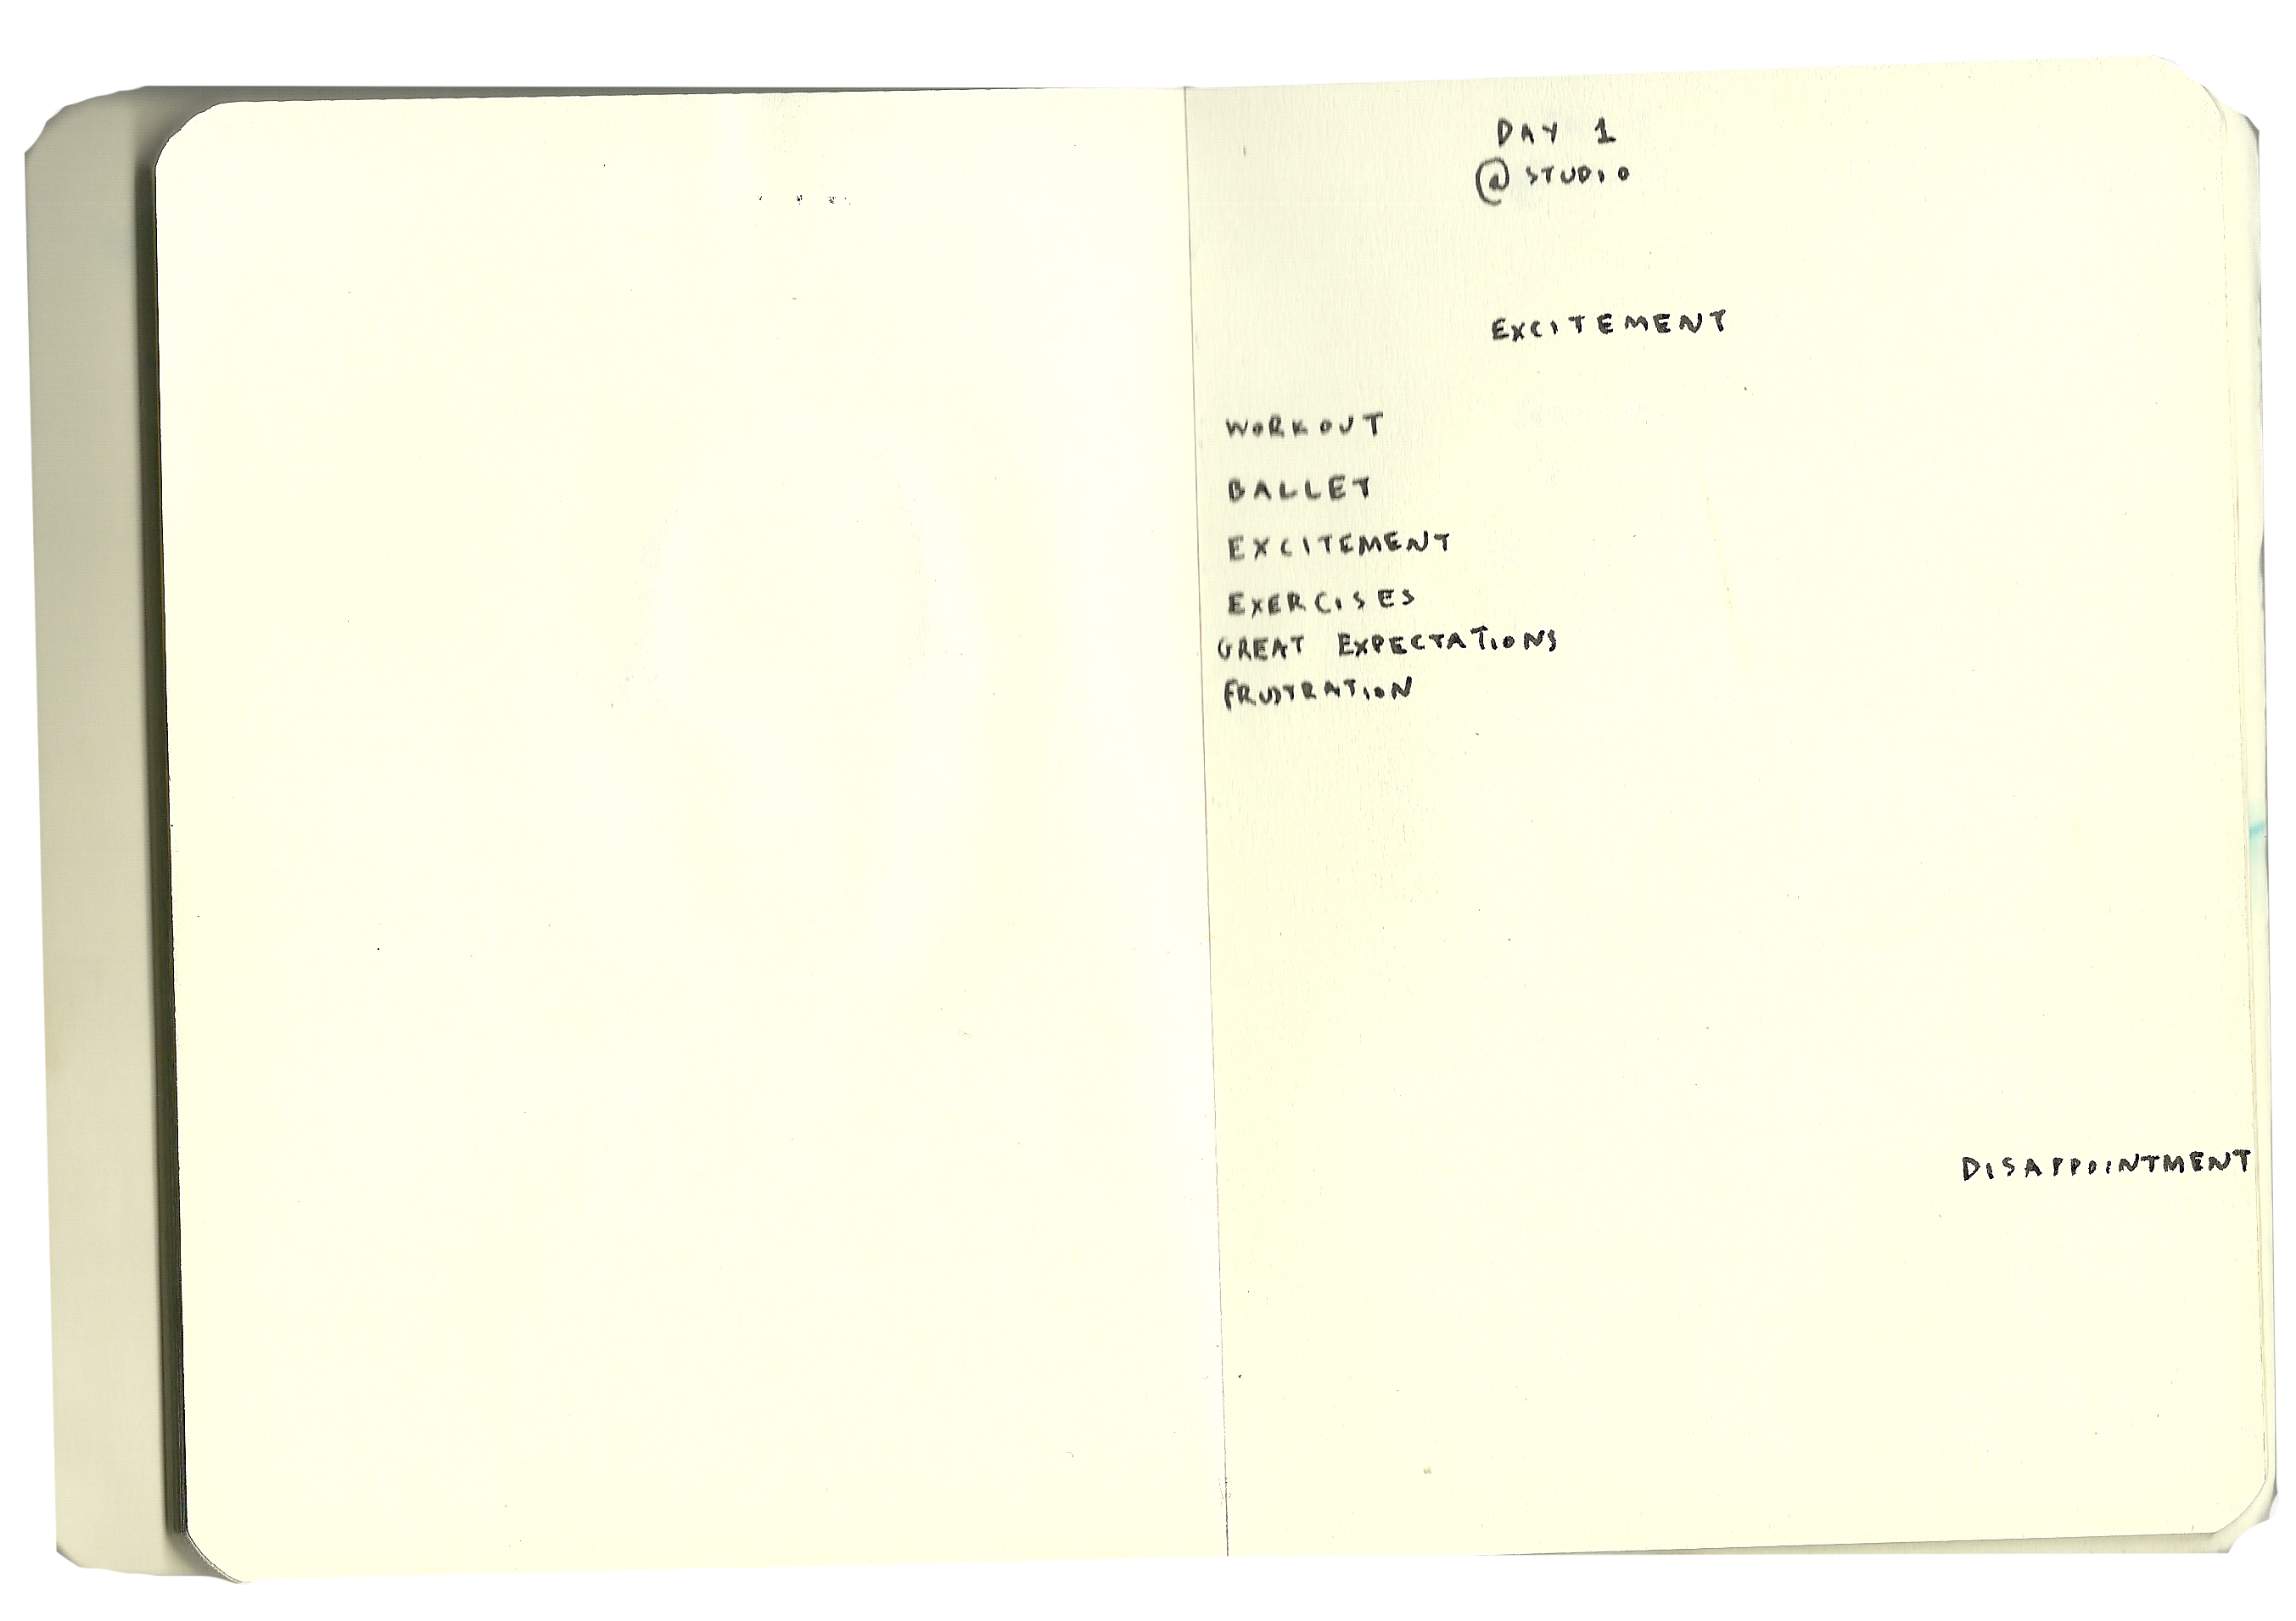 DAY 1
@ STUDIO
EXCITEMENT
WORKOUT
BALLET
EXCITEMENT
EXERCISES
GREAT EXPECTATIONS
FRUSTRATION
DISAPPOINTMENT